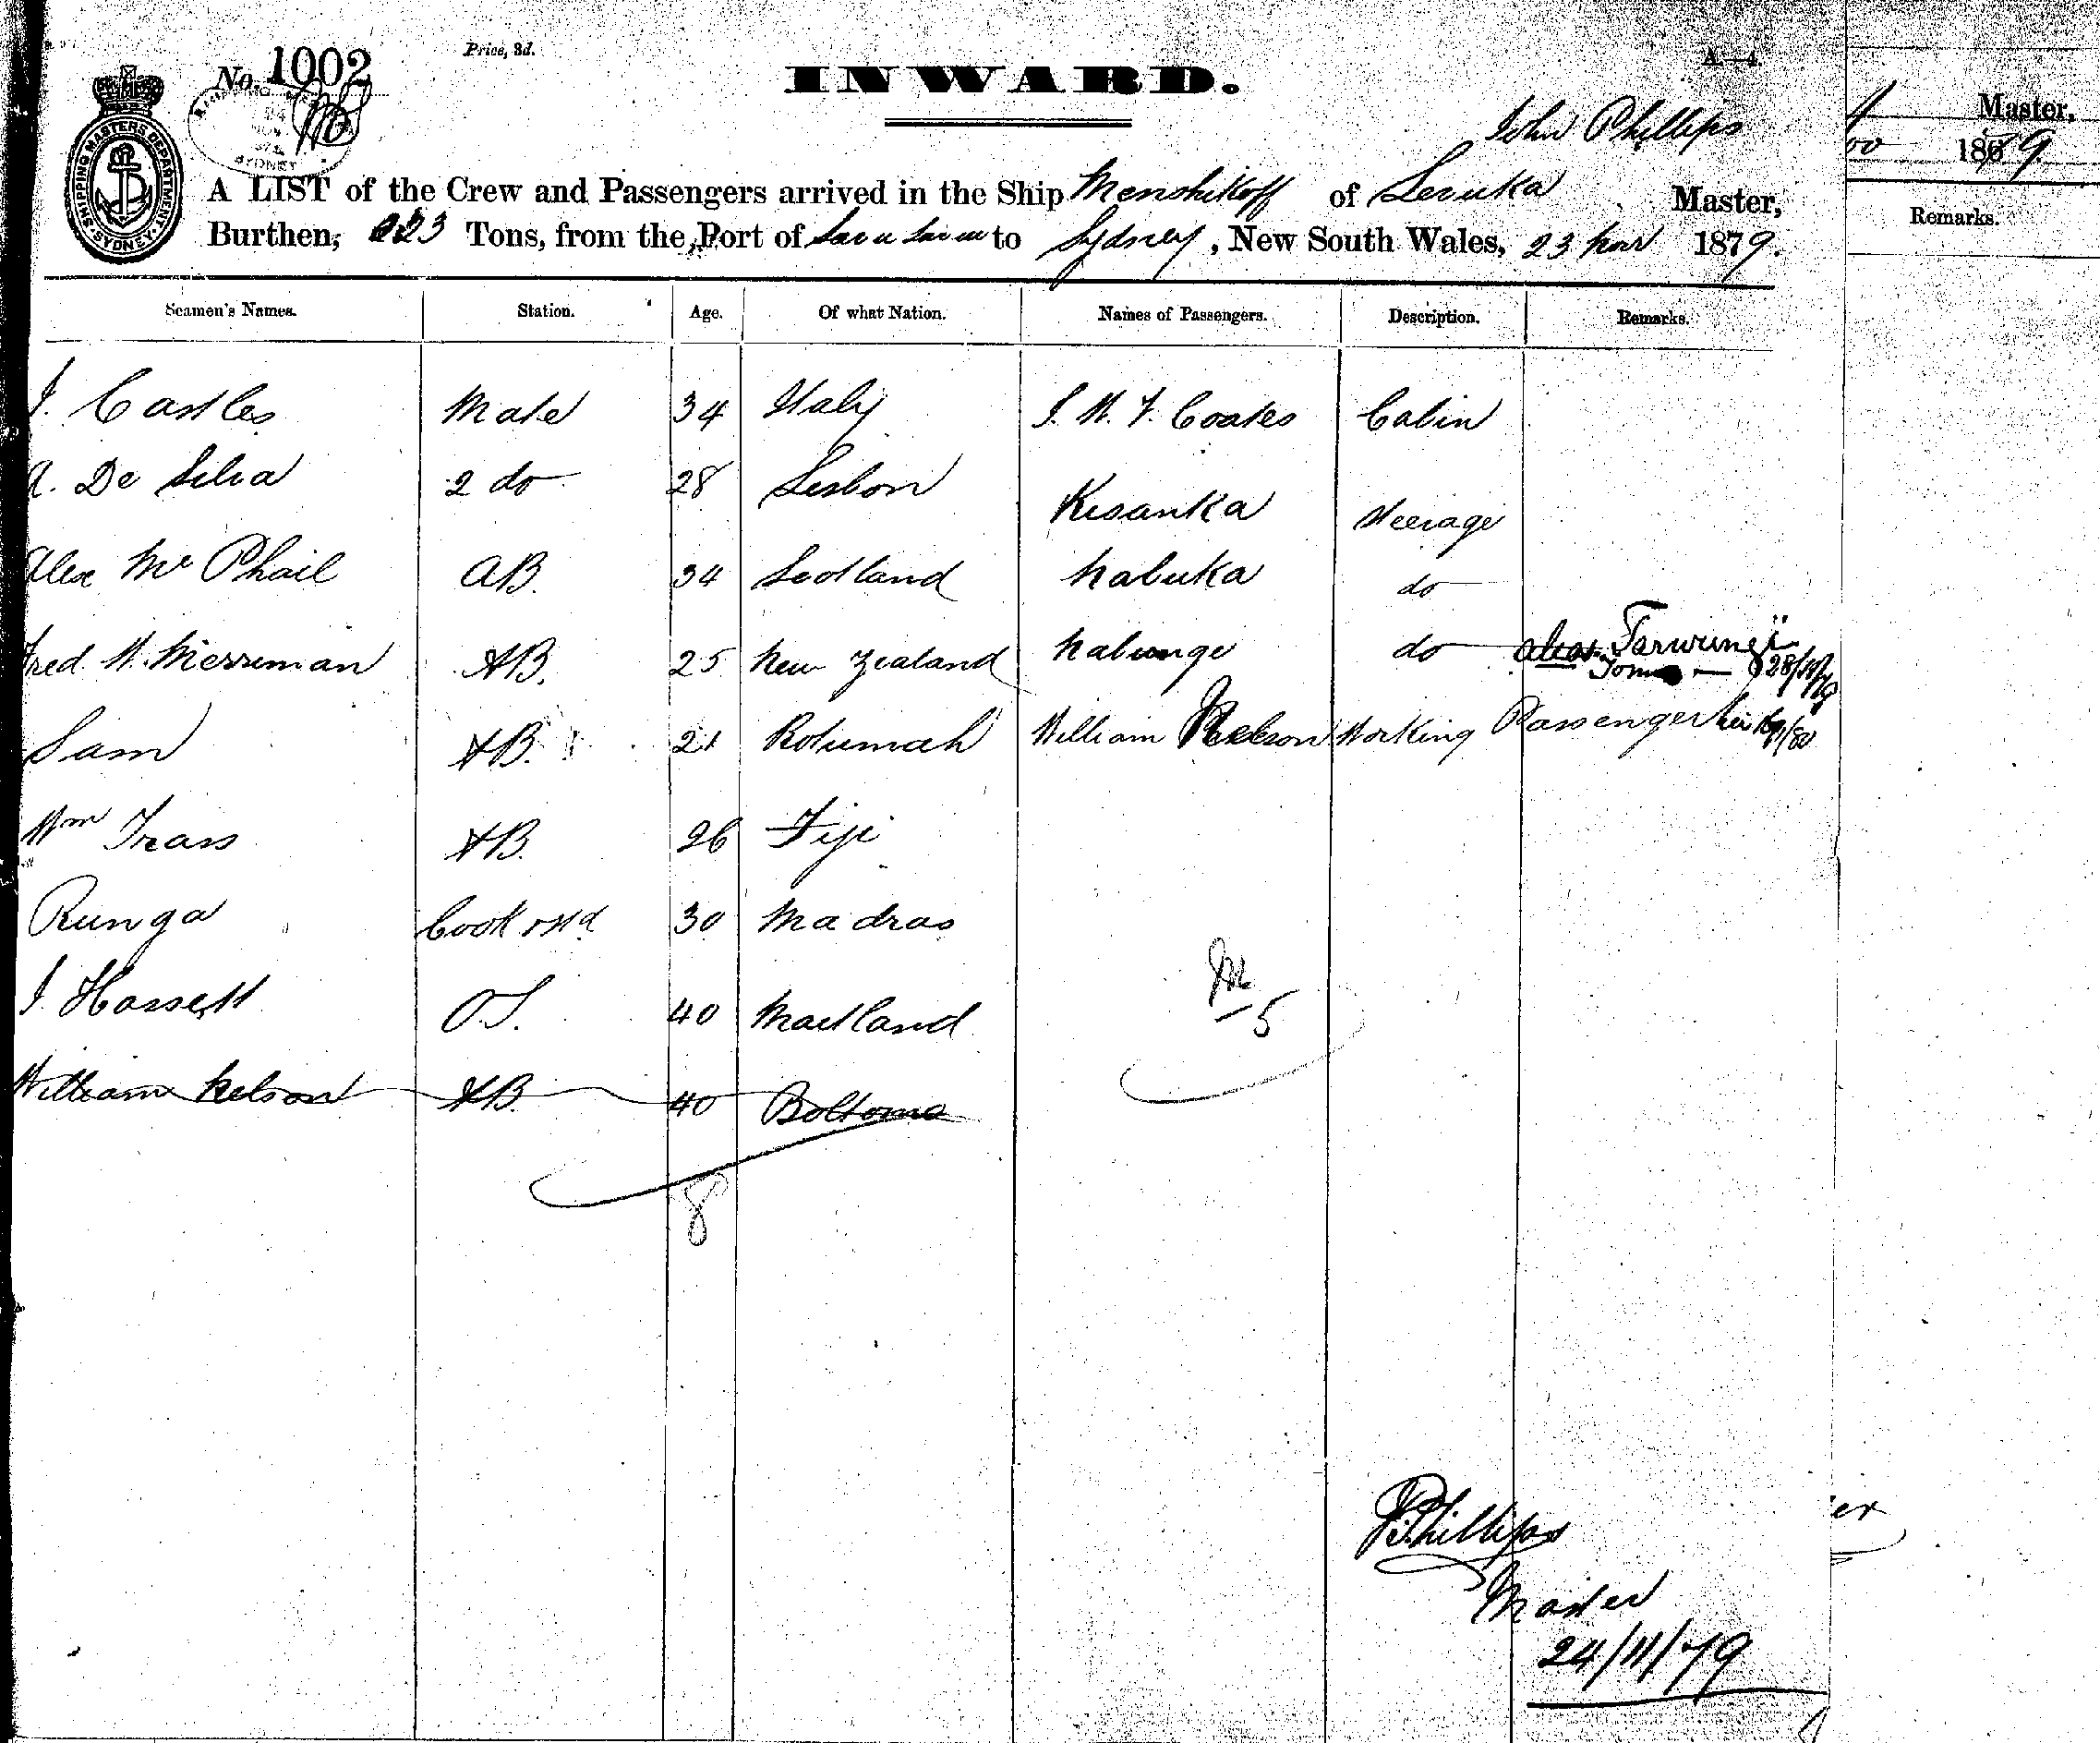 No. 1002
Price, 3d.
INWARD.
SHIPPING MASTERS DEPARTMENT SYDNEY
SYDNEY
John Phillips
A LIST of the Crew and Passengers arrived in the Ship Menshikoff of Levuka Master,
Burthen, 223 Tons, from the Port of to Sydney, New South Wales, 23 Nov 1879.
Seamen's Names. Station. Age. Of what Nation. Names of Passengers. Description. Remarks.
J. Castles Mate 34 Italy J. W. F. Coates Cabin
A. De Silva 2 do 28 Lisbon Kusanka Steerage
Alex Mc Phail AB. 34 Scotland Nabuka do
Fred W. Merriman AB. 25 New Zealand Nabunge do alias Tarwungi
28/11/79
Sam AB. 21 Rotumah William Nelson Working Passenger
Wm Trass AB. 26 Fiji
Runga Cook & Std 30 Madras
J. Hassett O.S. 40 Maitland
5
William Nelson AB. 40
8
J Phillips
Master
24/11/79
Master,
1869
Remarks.